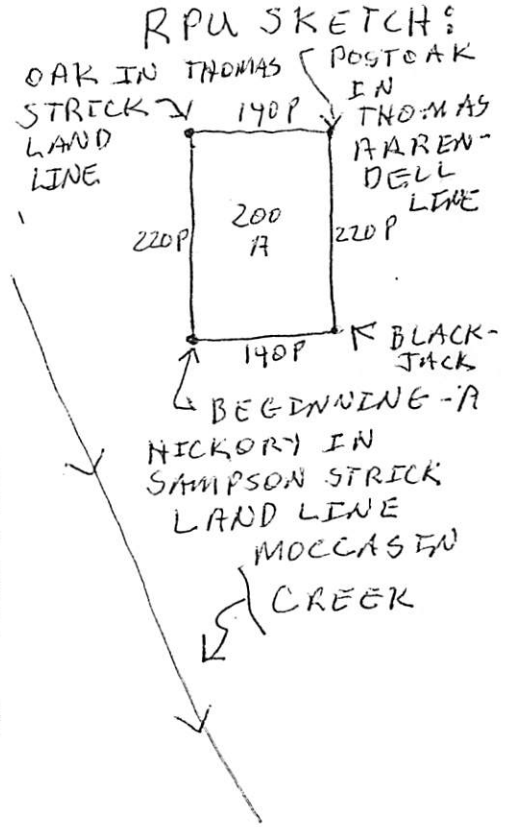 RPU SKETCH:
OAK IN THOMAS
STRICK
LAND
LINE
POSTOAK
IN
THOMAS
AAREN-
DELL
LINE
140P
220P
200
A
220P
140P
BLACK-
JACK
BEGINNING - A
HICKORY IN
SAMPSON STRICK
LAND LINE
MOCCASIN
CREEK